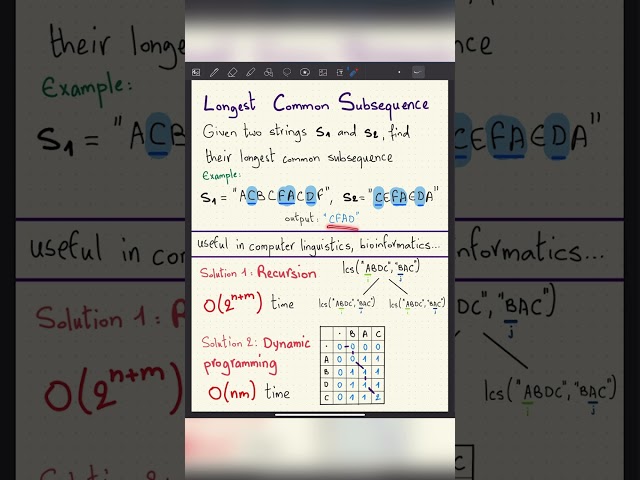 Longest Common Subsequence
Given two strings S1 and S2, find
their longest common subsequence
Example:
S1 = "ACBCFACDF", S2 = "CEFAEDA"
output: "CFAD"
useful in computer linguistics, bioinformatics...
Solution 1: Recursion
O(2^n+m) time
lcs("ABDC","BAC")
i j
lcs("ABDC","BAC") lcs("ABDC","BAC")
i j i j
Solution 2: Dynamic
programming
O(nm) time
· B A C
· 0 0 0 0
A 0 0 1 1
B 0 1 1 1
D 0 1 1 1
C 0 1 1 2
their longest
Example:
S1 = "ACB
useful in
Solution 1: Re
O(2^n+m)
Solution 2:
nce
CEFAEDA"
nformatics...
DC","BAC")
j
lcs("ABDC","BAC")
i j
C